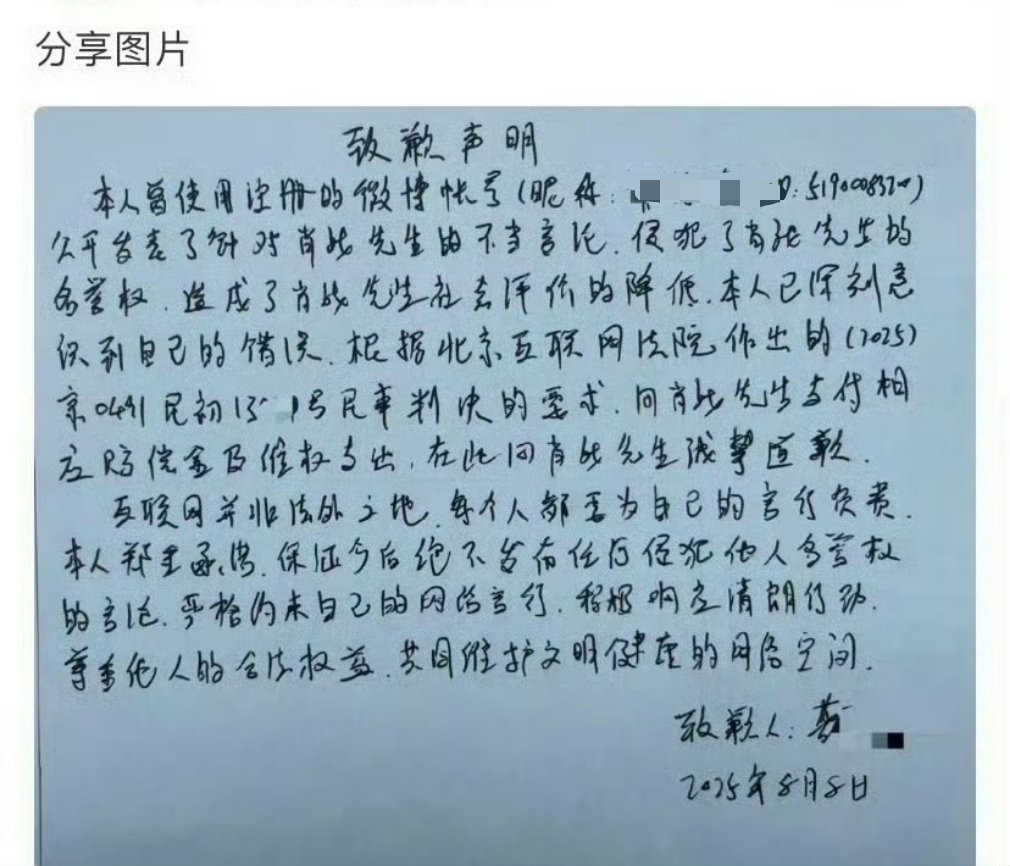 分享图片
致歉声明
本人曾使用注册的微博帐号(昵称: D:519000832
公开发表了针对肖战先生的不当言论,侵犯了肖战先生的
名誉权,造成了肖战先生社会评价的降低.本人已深刻意
识到自己的错误.根据北京互联网法院作出的(2025)
京0491民初13 1号民事判决的要求,向肖战先生支付相
应赔偿金及维权支出,在此向肖战先生诚挚道歉.
互联网并非法外之地,每个人都要为自己的言行负责.
本人郑重承诺,保证今后绝不发布任何侵犯他人名誉权
的言论,严格约束自己的网络言行,积极响应清朗行动.
尊重他人的合法权益,共同维护文明健康的网络空间.
致歉人:
2025年8月8日